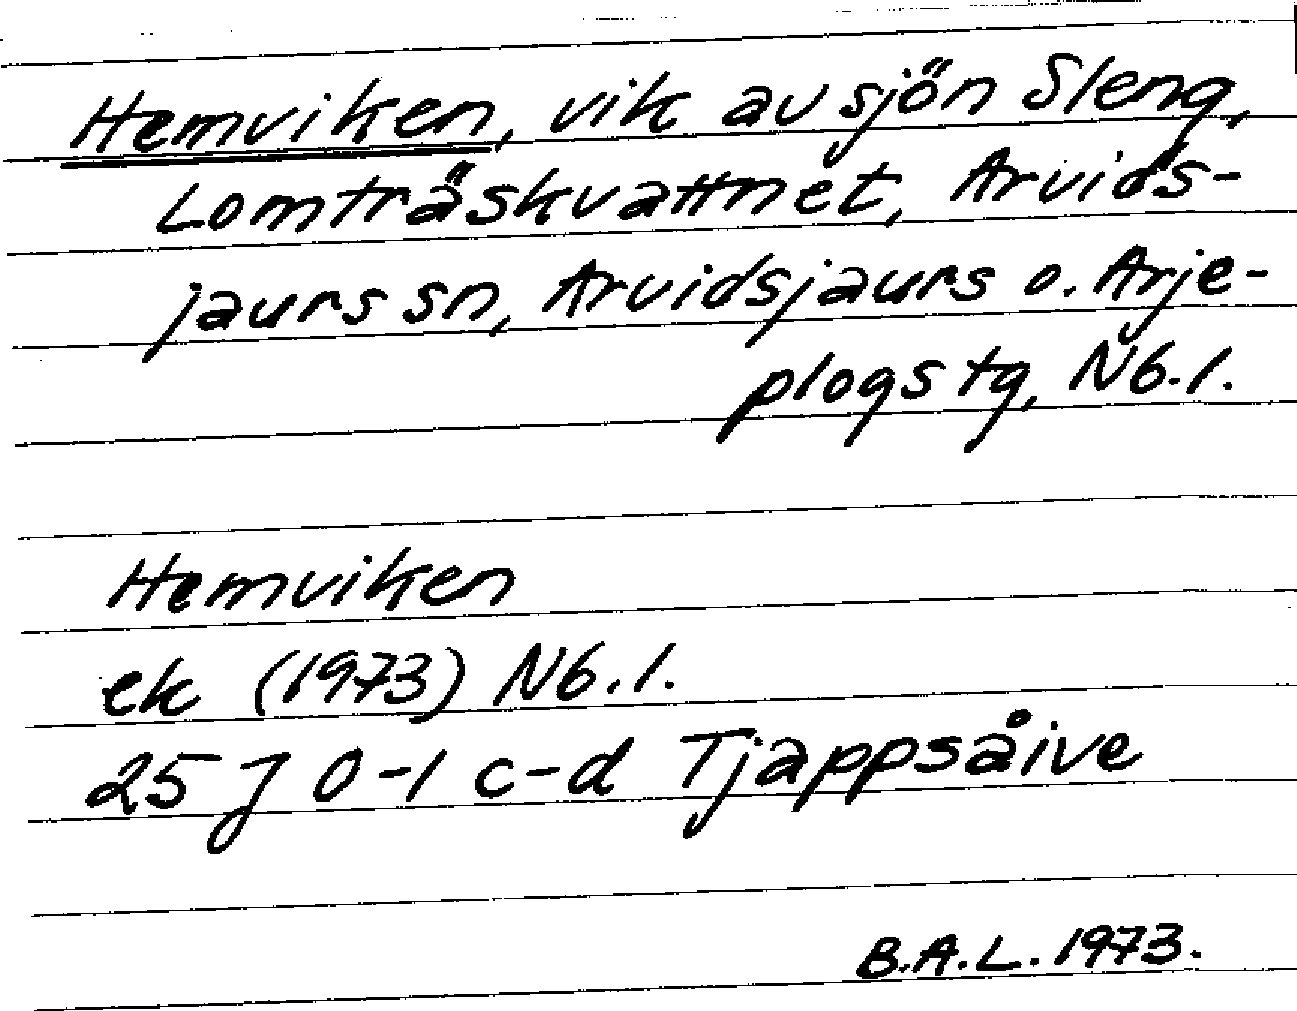 Hemviken, vik av sjön Sleng,
Lomträskvattnet, Arvids-
jaurs sn, Arvidsjaurs o. Arje-
plogs tg, Nb.l.
Hemviken
ek (1973) Nb.l.
25 J 0-1 c-d Tjappsåive
B.A.L. 1973.